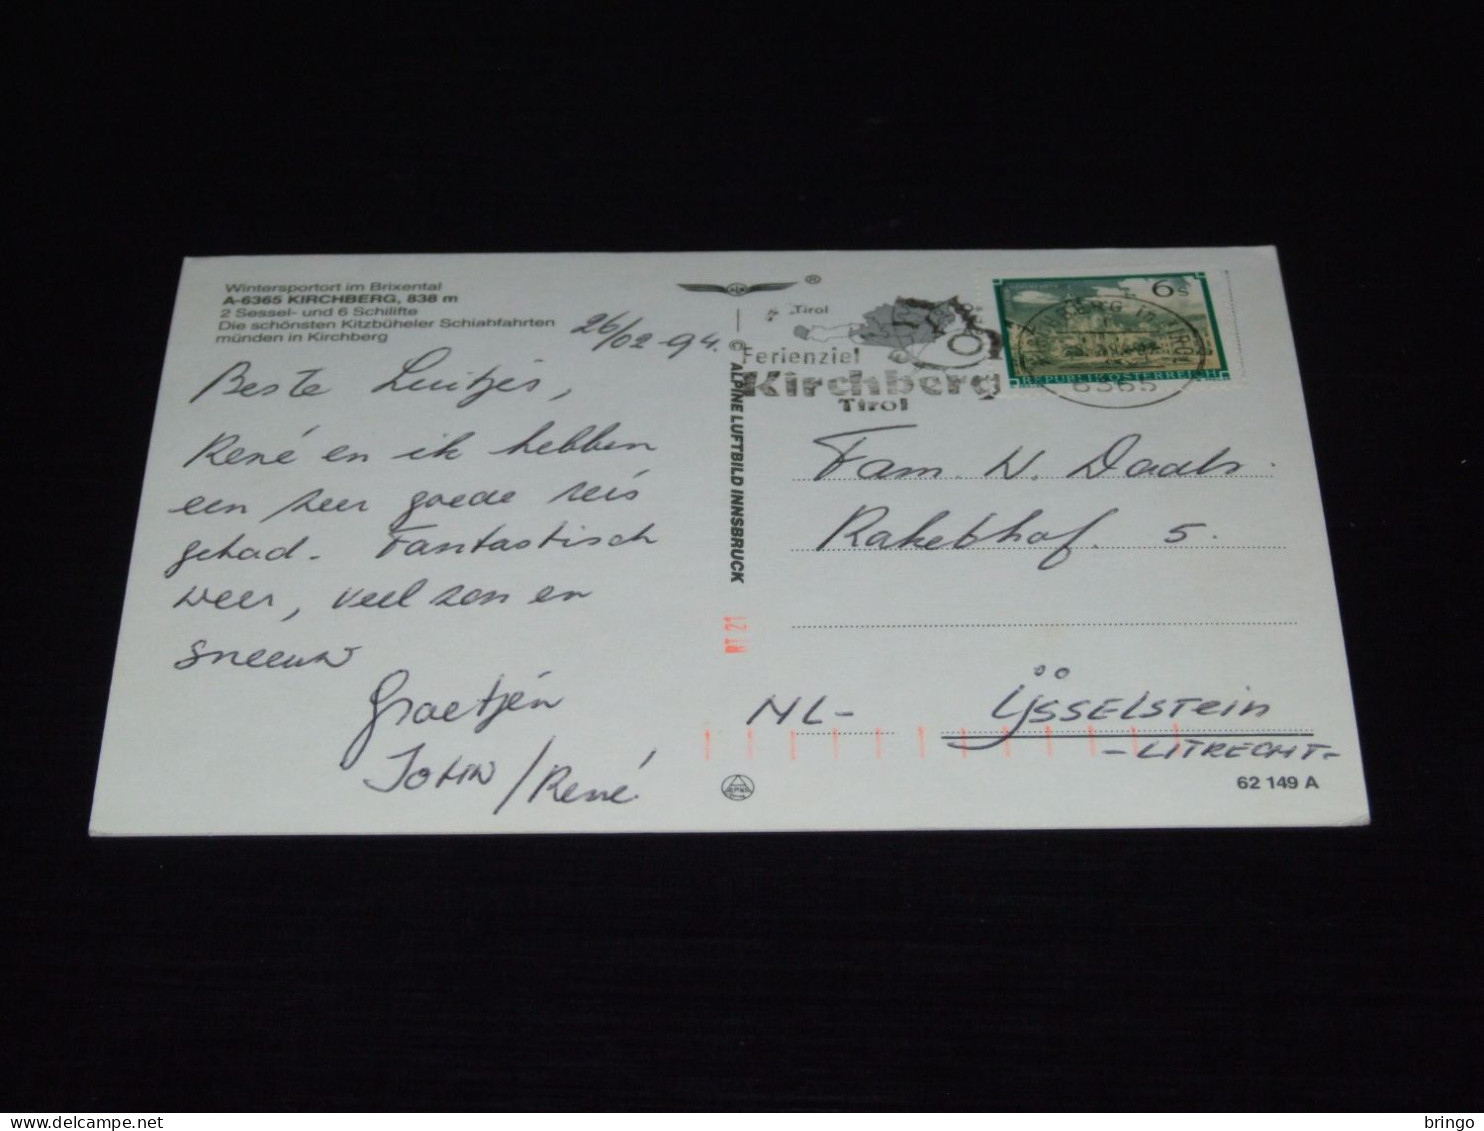 Wintersportort im Brixental
A-6365 KIRCHBERG, 838 m
2 Sessel- und 6 Schilifte
Die schönsten Kitzbüheler Schiabfahrten
münden in Kirchberg
26/02-94.
Beste Luitjes,
René en ik hebben
een zeer goede reis
gehad. Fantastisch
weer, veel zon en
sneeuw
Groetjes
JOHN/René
© ALPINE LUFTBILD INNSBRUCK
®
Tirol
Ferienziel
Kirchberg
Tirol
6 S
REPUBLIK ÖSTERREICH
6365
Fam. W. Daals.
Rakethof. 5.
NL- IJSSELSTEIN
-UTRECHT-
62 149 A
bringo